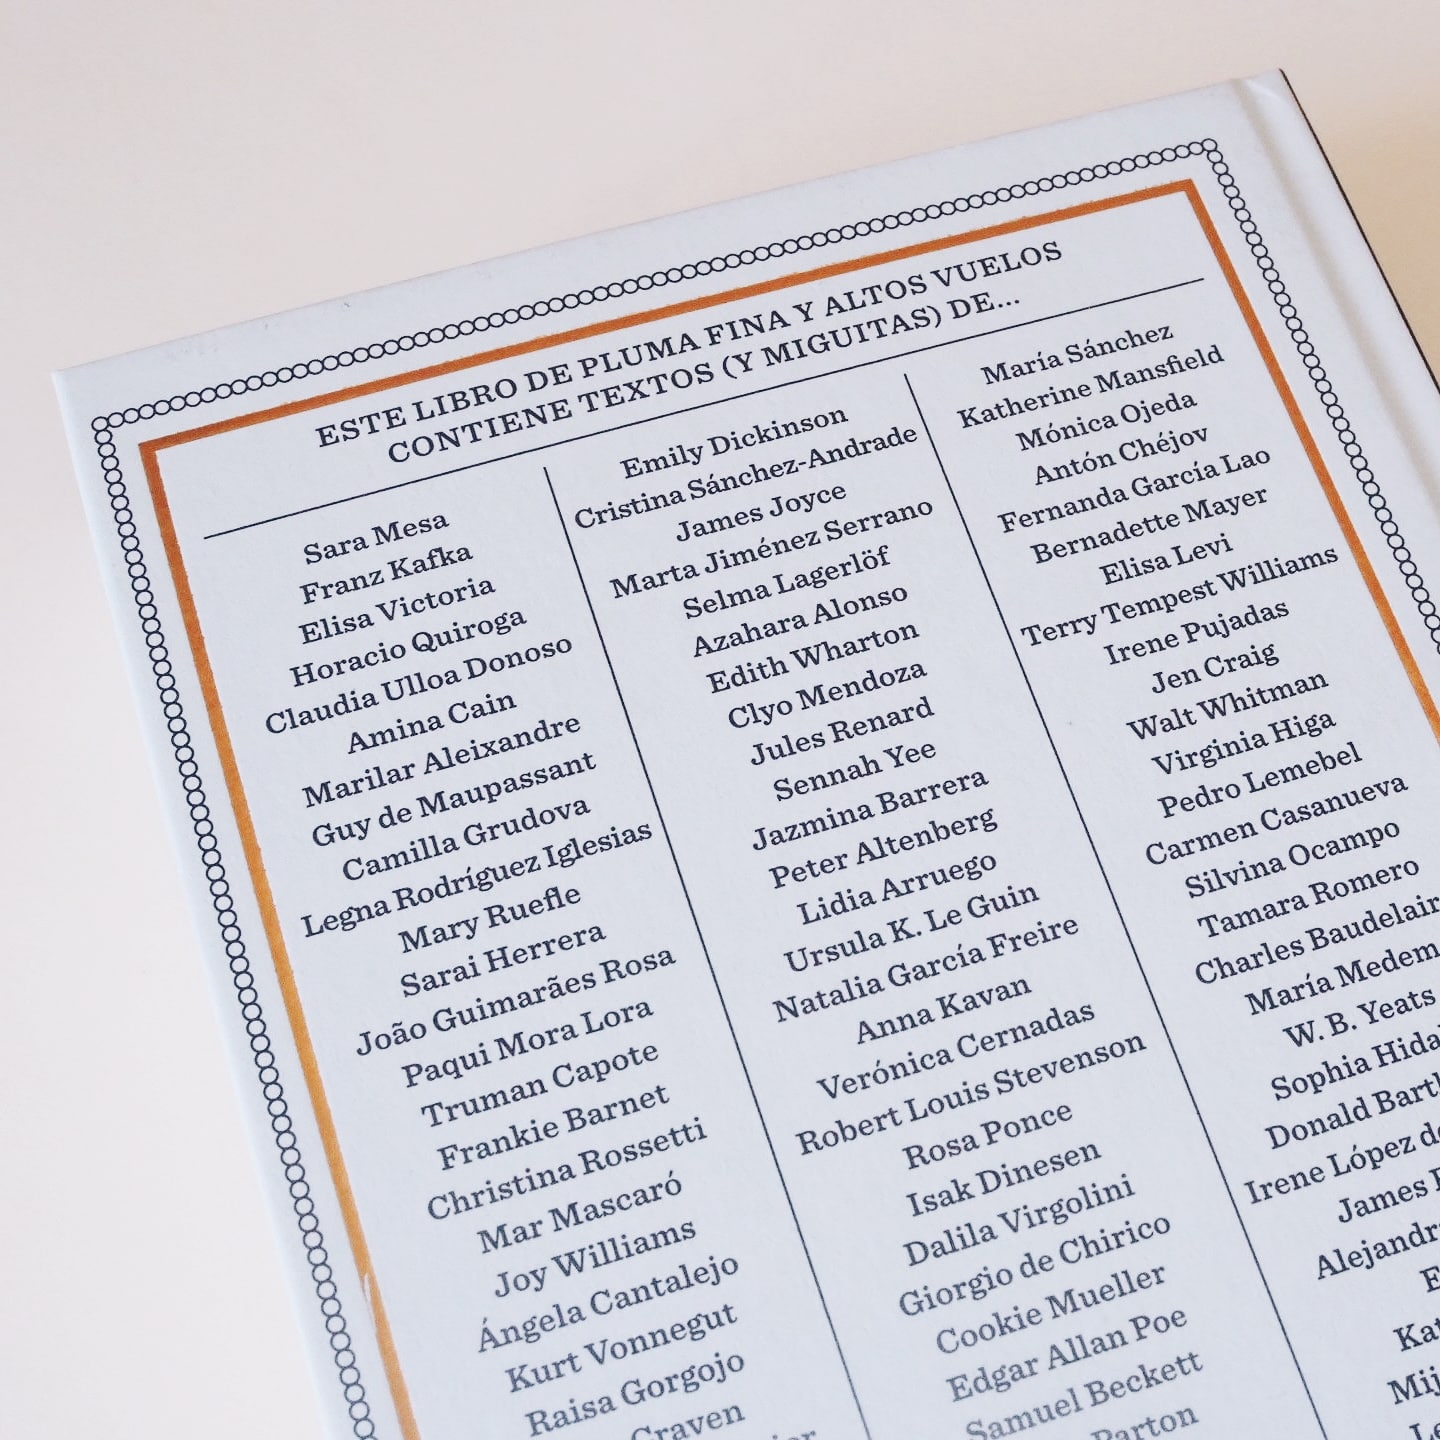 ESTE LIBRO DE PLUMA FINA Y ALTOS VUELOS
CONTIENE TEXTOS (Y MIGUITAS) DE...
Sara Mesa
Franz Kafka
Elisa Victoria
Horacio Quiroga
Claudia Ulloa Donoso
Amina Cain
Marilar Aleixandre
Guy de Maupassant
Camilla Grudova
Legna Rodríguez Iglesias
Mary Ruefle
Sarai Herrera
João Guimarães Rosa
Paqui Mora Lora
Truman Capote
Frankie Barnet
Christina Rossetti
Mar Mascaró
Joy Williams
Ángela Cantalejo
Kurt Vonnegut
Raisa Gorgojo
Craven
Emily Dickinson
Cristina Sánchez-Andrade
James Joyce
Marta Jiménez Serrano
Selma Lagerlöf
Azahara Alonso
Edith Wharton
Clyo Mendoza
Jules Renard
Sennah Yee
Jazmina Barrera
Peter Altenberg
Lidia Arruego
Ursula K. Le Guin
Natalia García Freire
Anna Kavan
Verónica Cernadas
Robert Louis Stevenson
Rosa Ponce
Isak Dinesen
Dalila Virgolini
Giorgio de Chirico
Cookie Mueller
Edgar Allan Poe
Samuel Beckett
Parton
María Sánchez
Katherine Mansfield
Mónica Ojeda
Antón Chéjov
Fernanda García Lao
Bernadette Mayer
Elisa Levi
Terry Tempest Williams
Irene Pujadas
Jen Craig
Walt Whitman
Virginia Higa
Pedro Lemebel
Carmen Casanueva
Silvina Ocampo
Tamara Romero
Charles Baudelair
María Medem
W. B. Yeats
Sophia Hida
Donald Bart
Irene López de
James
Alejandr
Kat
Mij